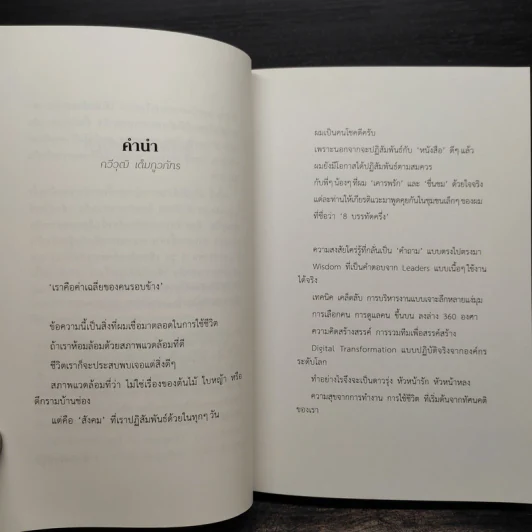 คำนำ
กวีวุฒิ เต็มภูวภัทร
'เราคือค่าเฉลี่ยของคนรอบข้าง'
ข้อความนี้เป็นสิ่งที่ผมเชื่อมาตลอดในการใช้ชีวิต
ถ้าเราห้อมล้อมด้วยสภาพแวดล้อมที่ดี
ชีวิตเราก็จะประสบพบเจอแต่สิ่งดีๆ
สภาพแวดล้อมที่ว่า ไม่ใช่เรื่องของต้นไม้ ใบหญ้า หรือ
ตึกรามบ้านช่อง
แต่คือ 'สังคม' ที่เราปฏิสัมพันธ์ด้วยในทุกๆ วัน
ผมเป็นคนโชคดีครับ
เพราะนอกจากจะปฏิสัมพันธ์กับ 'หนังสือ' ดีๆ แล้ว
ผมยังมีโอกาสได้ปฏิสัมพันธ์ตามสมควร
กับพี่ๆ น้องๆ ที่ผม 'เคารพรัก' และ 'ชื่นชม' ด้วยใจจริง
แต่ละท่านให้เกียรติแวะมาพูดคุยกันในชุมชนเล็กๆ ของผม
ที่ชื่อว่า '8 บรรทัดครึ่ง'
ความสงสัยใคร่รู้ที่กลั่นเป็น 'คำถาม' แบบตรงไปตรงมา
Wisdom ที่เป็นคำตอบจาก Leaders แบบเนื้อๆ ใช้งาน
ได้จริง
เทคนิค เคล็ดลับ การบริหารงานแบบเจาะลึกหลายแง่มุม
การเลือกคน การดูแลคน ขึ้นบน ลงล่าง 360 องศา
ความคิดสร้างสรรค์ การรวมทีมเพื่อสรรค์สร้าง
Digital Transformation แบบปฏิบัติจริงจากองค์กร
ระดับโลก
ทำอย่างไรจึงจะเป็นดาวรุ่ง หัวหน้ารัก หัวหน้าหลง
ความสุขจากการทำงาน การใช้ชีวิต ที่เริ่มต้นจากทัศนคติ
ของเรา